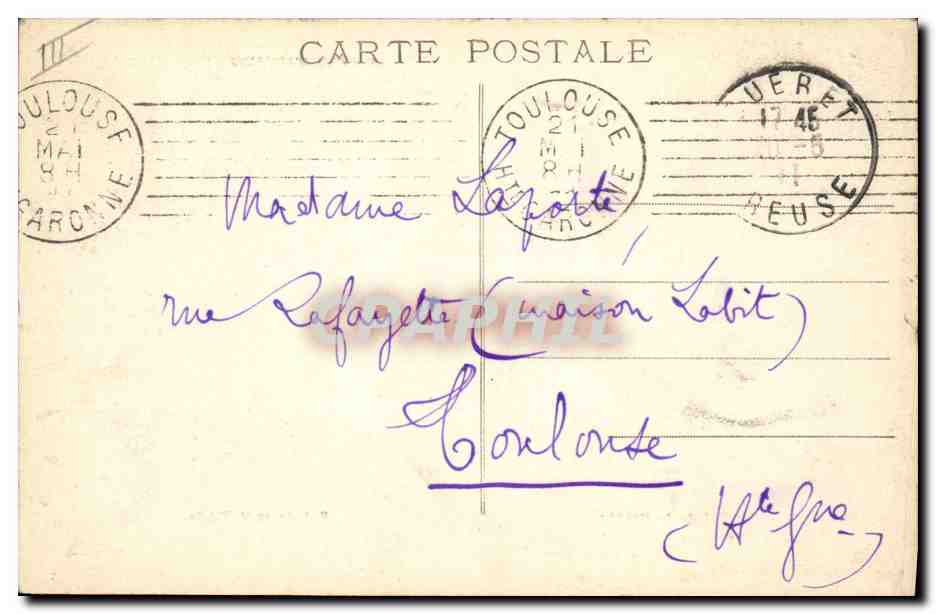 III
CARTE POSTALE
TOULOUSE
21
MAI
8H
GARONNE
TOULOUSE
21
M I
8H
HTE GARONNE
UERET
17 45
-5
REUSE
Madame Laporte,
rue Lafayette (maison Labit)
CPAPHIL
Toulouse
(Hte Gne)